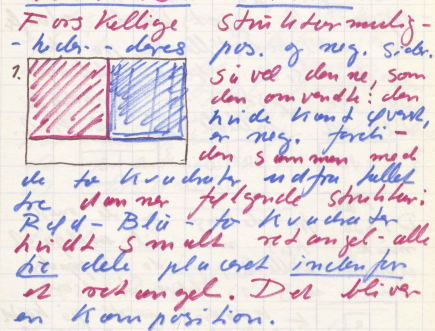 Forskellige strukturmulig-
-heder - deres pos. og neg. sider.
1. såvel denne, som
den omvendte: den
hvide kant øverst,
er neg. fordi -
den sammen med
de to kvadrater udfra tallet
tre danner følgende struktur:
Rød - Blå - to kvadrater
hvidt smalt retangel - alle
tre dele placeret indenfor
et retangel. Det bliver
en komposition.